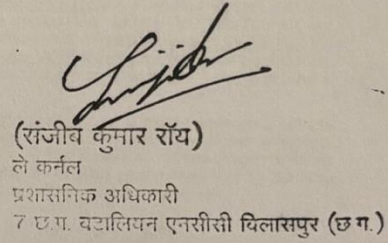 (संजीब कुमार रॉय)
ले कर्नल
प्रशासनिक अधिकारी
7 छ.ग. बटालियन एनसीसी बिलासपुर (छ ग.)